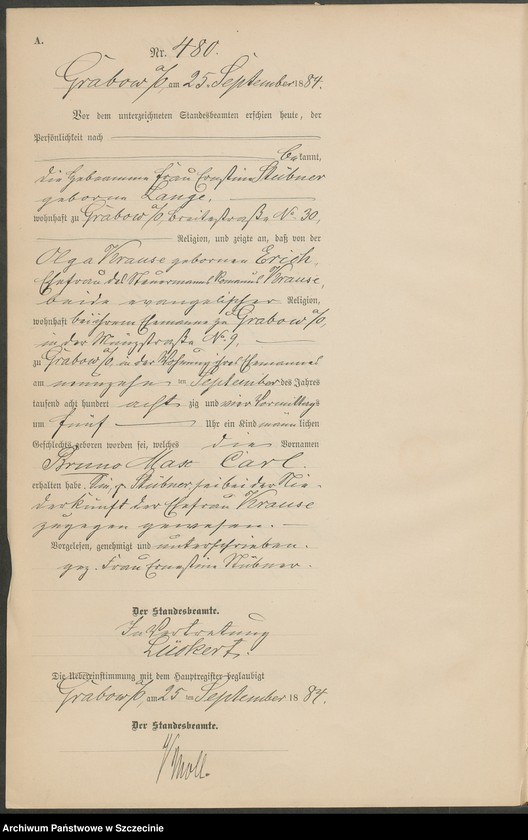 A.
Nr. 480.
Grabow a/O, am 25 September 1884.
Vor dem unterzeichneten Standesbeamten erschien heute, der
Persönlichkeit nach
bekannt,
die Hebeamme Frau Ernestine Stübner
geborne Lange,
wohnhaft zu Grabow a/O, Breitestraße No. 30,
Religion, und zeigte an, daß von der
Olga Krause gebornen Erich,
Ehefrau des Steuermanns Krause,
beide evangelischer Religion,
wohnhaft bei ihrem Ehemanne zu Grabow a/O,
in der Münzstraße No. 9,
zu Grabow a/O, in der Wohnung ihres Ehemannes
am neunzehn ten September des Jahres
tausend acht hundert acht zig und vier Vormittags
um fünf Uhr ein Kind männlichen
Geschlechts geboren worden sei, welches die Vornamen
Bruno Max Carl.
erhalten habe. Sie, p. Stübner, sei bei der Nie-
derkunft der Ehefrau Krause
zugegen gewesen.
Vorgelesen, genehmigt und unterschrieben.
gez. Frau Ernestine Stübner.
Der Standesbeamte.
In Vertretung
Lückert.
Die Uebereinstimmung mit dem Hauptregister beglaubigt
Grabow a/O, am 25 ten September 1884.
Der Standesbeamte.
Archiwum Państwowe w Szczecinie